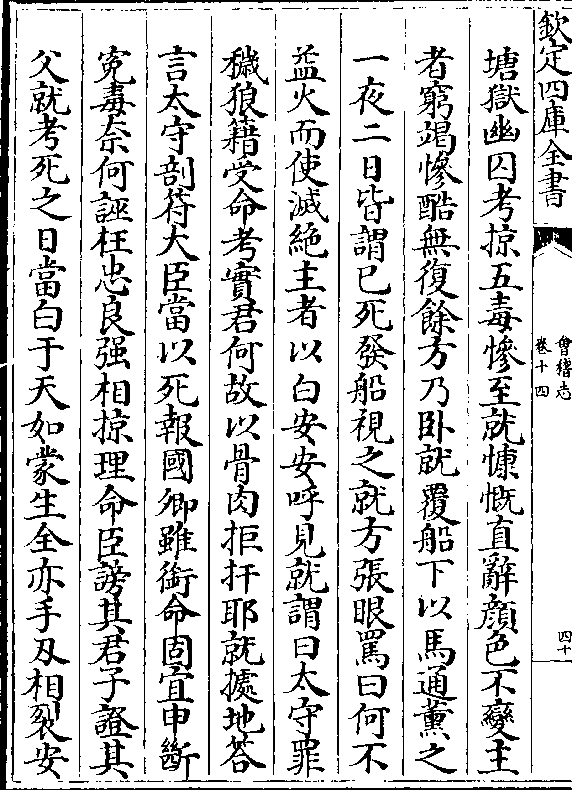 欽定四庫全書
會稽志
卷十四
四十
塘獄幽囚考掠五毒慘至就慷慨直辭顔色不變主
者窮竭慘酷無復餘方乃卧就覆船下以馬通薰之
一夜二日皆謂已死發船視之就方張眼罵曰何不
益火而使滅絶主者以白安安呼見就謂曰太守罪
穢狼藉受命考實君何故以骨肉拒扞耶就據地答
言太守剖符大臣當以死報國卿雖銜命固宜申斷
寃毒奈何誣枉忠良强相掠理命臣謗其君子證其
父就考死之日當白于天如蒙生全亦手刄相裂安